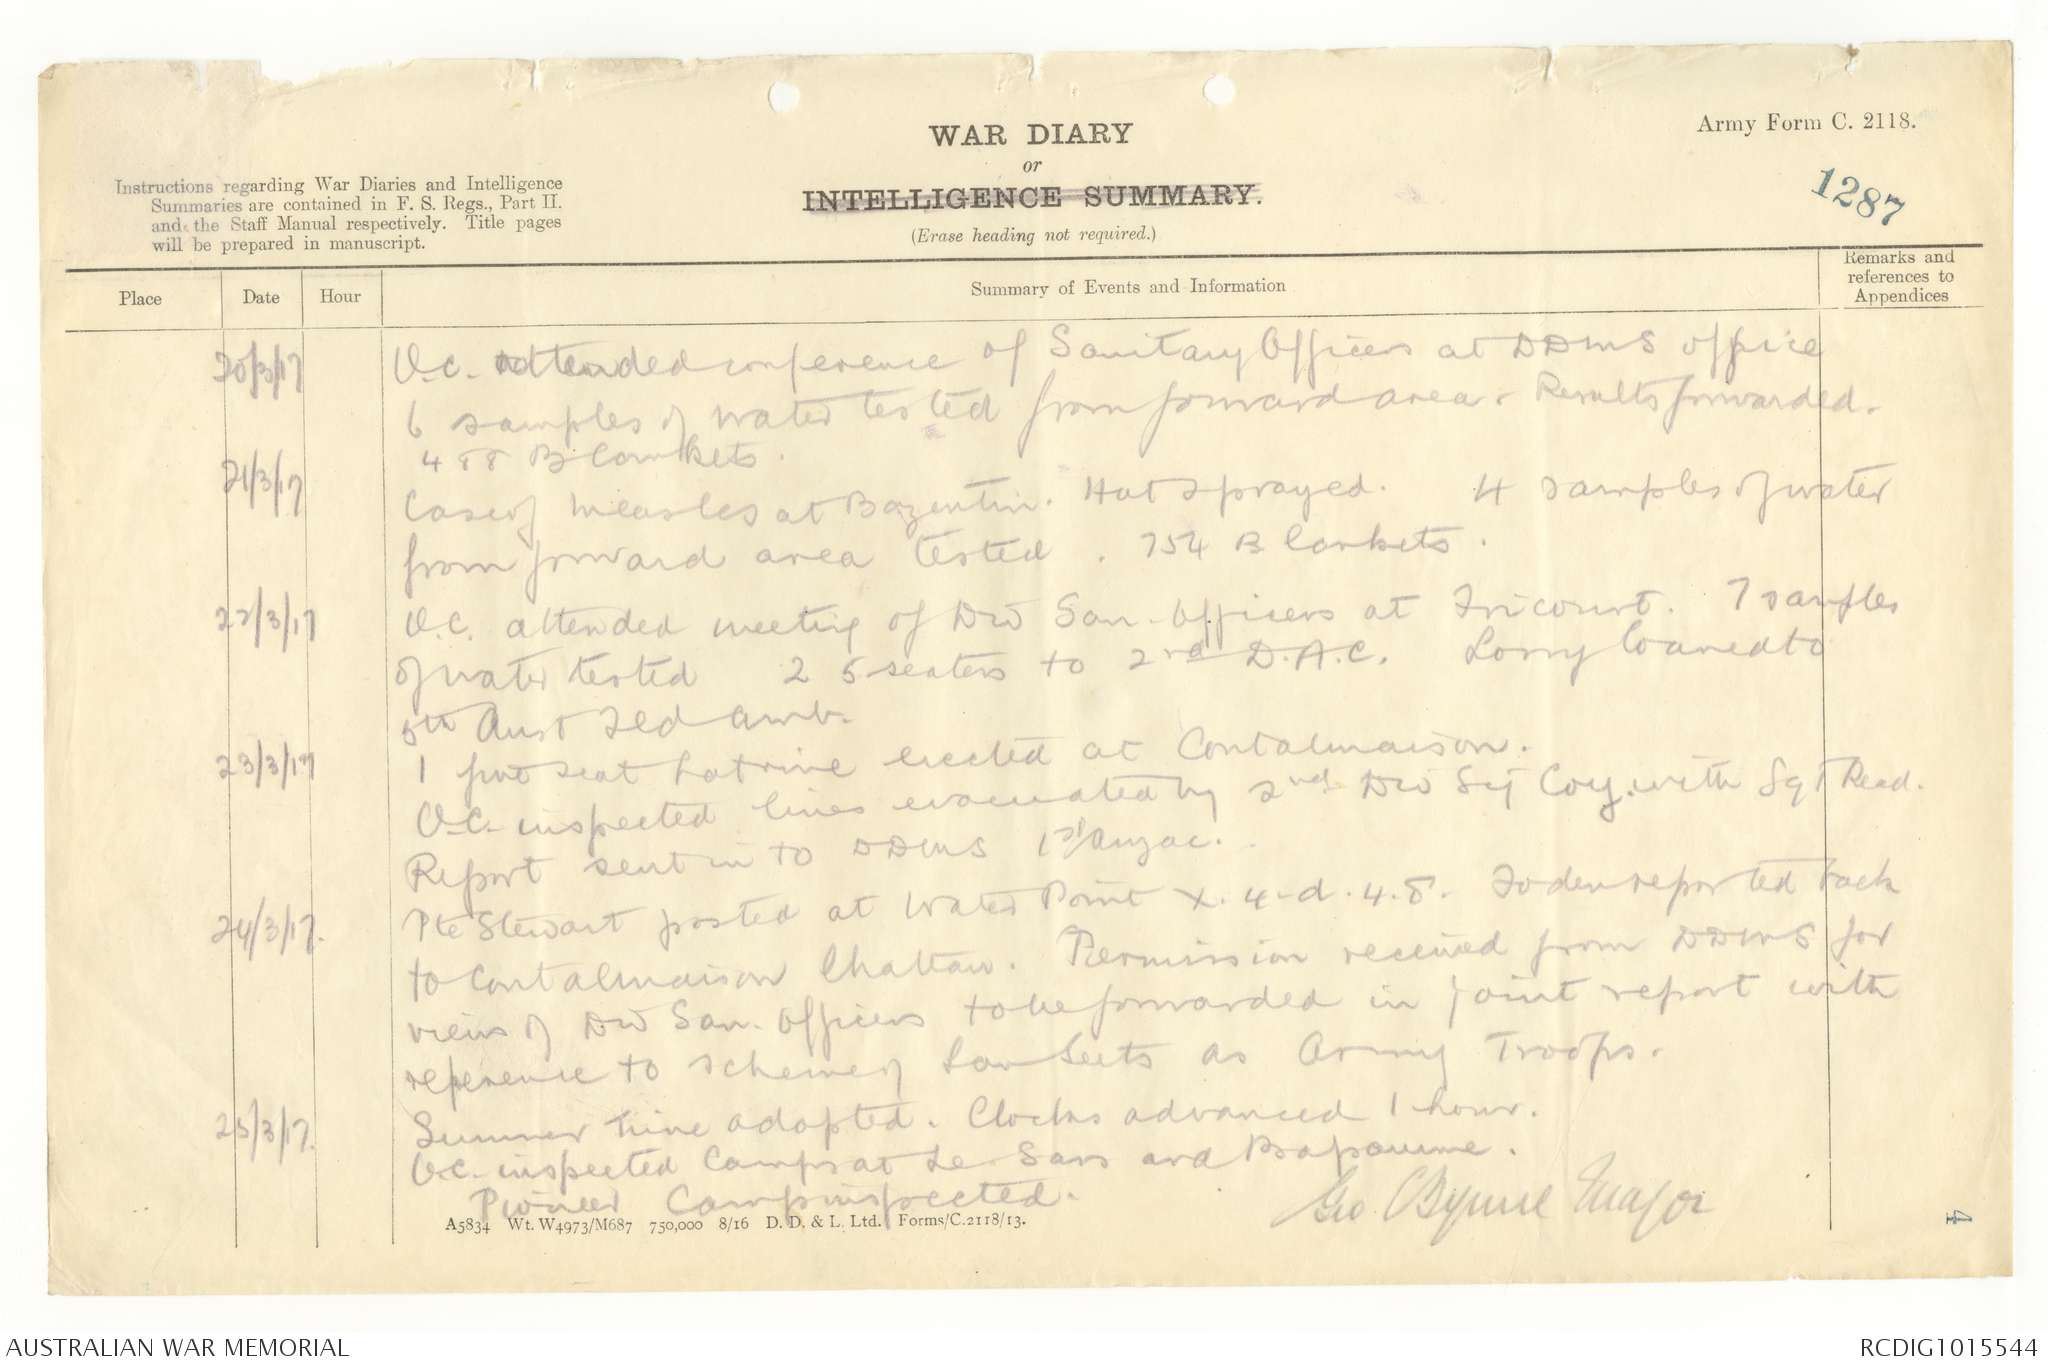 WAR DIARY
or
INTELLIGENCE SUMMARY.
(Erase heading not required.)
Army Form C. 2118.
1287
Instructions regarding War Diaries and Intelligence
Summaries are contained in F. S. Regs., Part II.
and the Staff Manual respectively. Title pages
will be prepared in manuscript.
Place
Date
Hour
Summary of Events and Information
Remarks and
references to
Appendices
20/3/17 O.C. attended conference of Sanitary Officers at DDMS office
6 samples of water tested from forward area. Results forwarded.
488 Blankets.
21/3/17 Case of Measles at Bazentin. Hut sprayed. 4 samples of water
from forward area tested. 754 Blankets.
22/3/17 O.C. attended meeting of Div San. Officers at Fricourt. 7 samples
of water tested 2 5 seaters to 2nd D.A.C. Lorry loaned to
5th Aust Fld Amb.
23/3/17 1 five seat Latrine erected at Contalmaison.
O.C. inspected lines evacuated by 2nd Div Sig Coy. with Sgt Read.
Report sent in to DDMS 1st Anzac.
24/3/17. Pte Stewart posted at Water Point X.4.d.4.8. Foden reported back
to Contalmaison Chattau. Permission received from DDMS for
views of Div San. Officers to be forwarded in joint report with
reference to scheme of San Sects as Army Troops.
25/3/17. Summer time adopted. Clocks advanced 1 hour.
O.C. inspected Camps at Le Sars and Bapaume.
Pioneer Camp inspected.
Geo Byrne Major
A5834 Wt. W4973/M687 750,000 8/16 D. D. & L. Ltd. Forms/C.2118/13.
4
AUSTRALIAN WAR MEMORIAL
RCDIG1015544